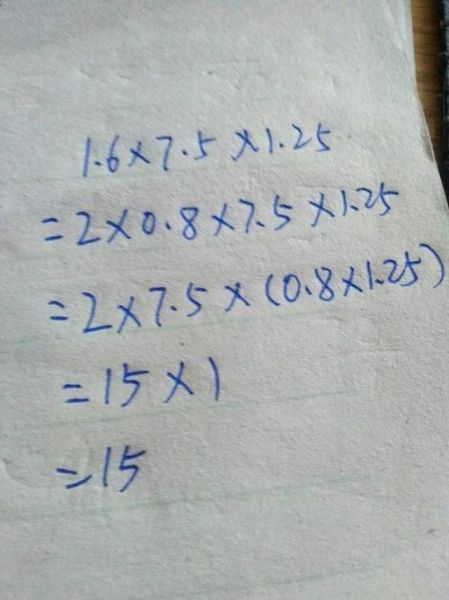 1.6×7.5×1.25
=2×0.8×7.5×1.25
=2×7.5×(0.8×1.25)
=15×1
=15